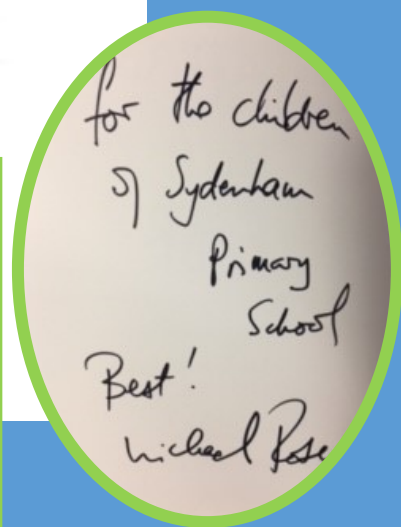 for the children
of Sydenham
Primary
School
Best!
Michael Rose